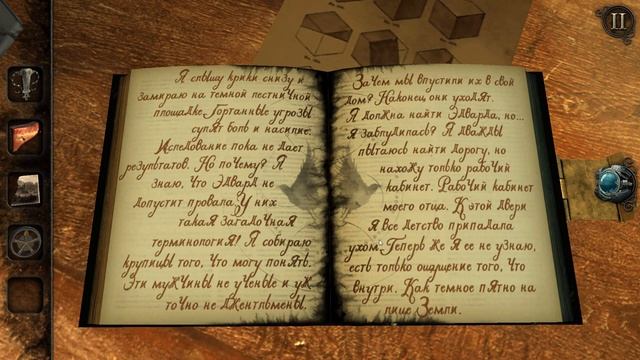 Я слышу крики снизу и
замираю на темной лестничной
площадке. Гортанные угрозы
сулят боль и насилие.
Исследование пока не дает
результатов. Но почему? Я
знаю, что Эдвард не
допустит провала. У них
такая загадочная
терминология! Я собираю
крупицы того, что могу понять.
Эти мужчины не ученые и уж
точно не джентльмены.
Зачем мы впустили их в свой
дом? Наконец они уходят.
Я должна найти Эдварда, но...
Я заблудилась? Я дважды
пытаюсь найти дорогу, но
нахожу только рабочий
кабинет. Рабочий кабинет
моего отца. К этой двери
я все детство припадала
ухом. Теперь же я ее не узнаю,
есть только ощущение того, что
внутри. Как темное пятно на
лице Земли.
II